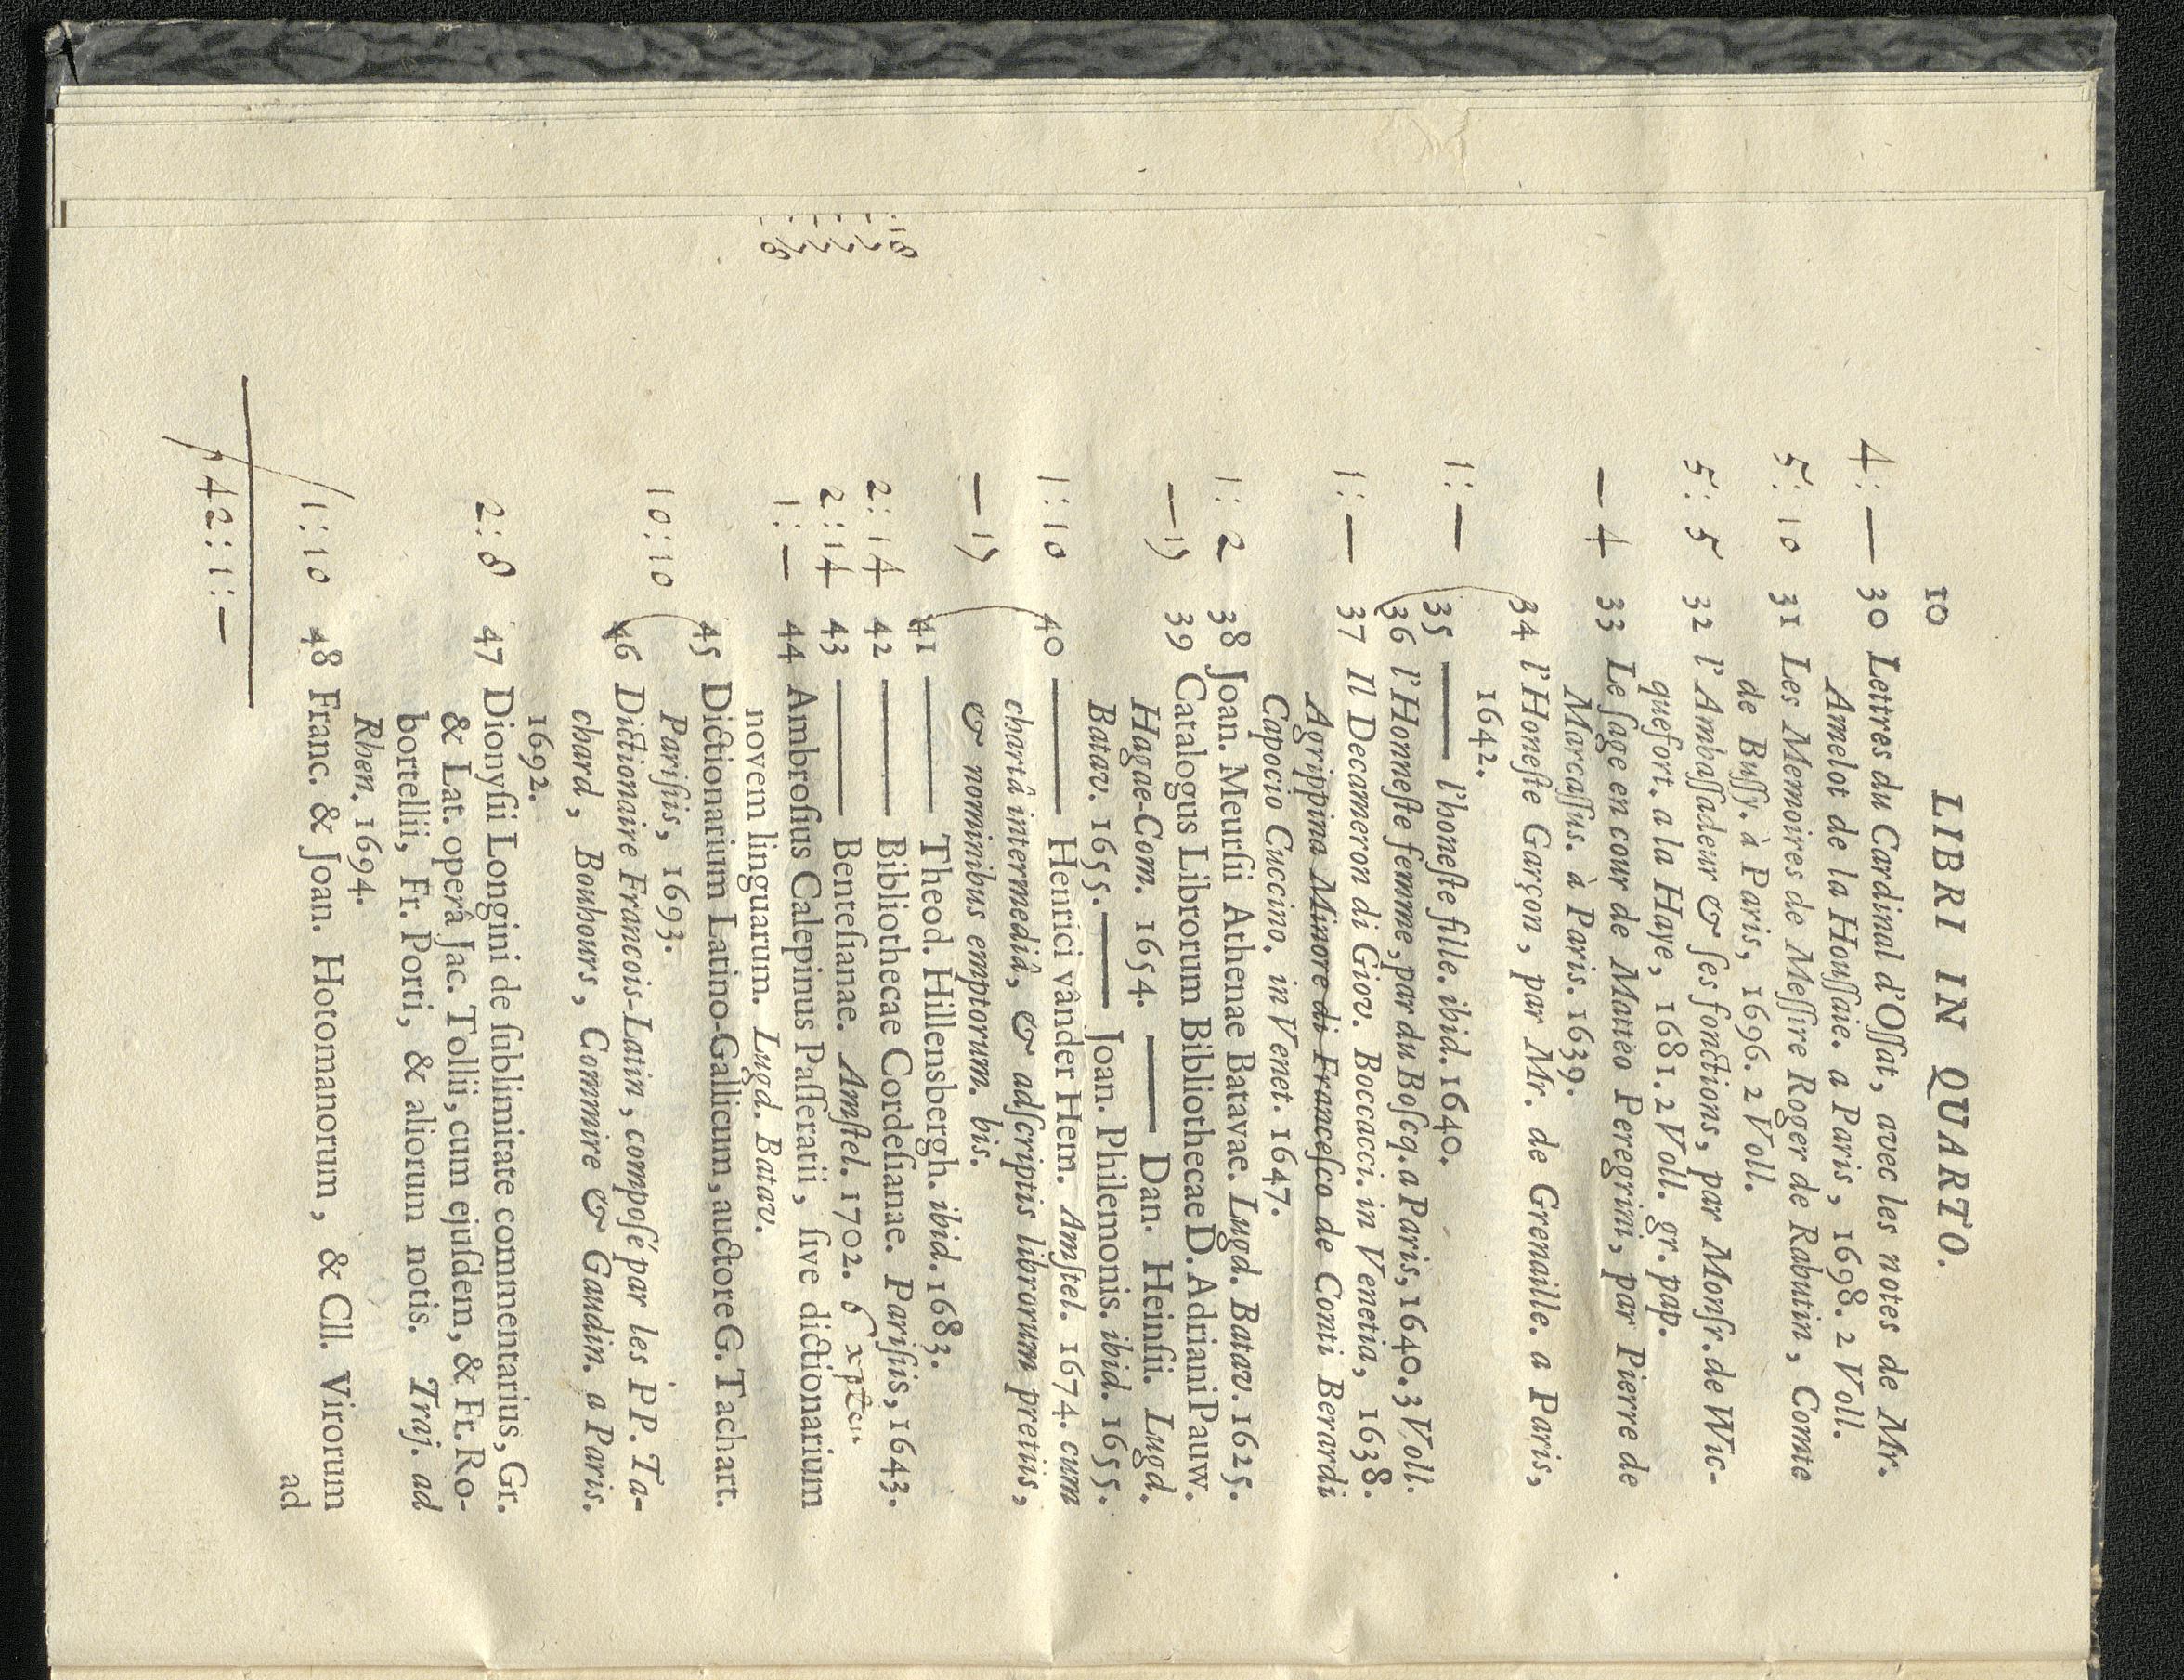 10 LIBRI IN QUARTO.
4:— 30 Lettres du Cardinal d'Oſſat, avec les notes de Mr.
Amelot de la Houſſaie. a Paris, 1698. 2 Voll.
5:10 31 Les Memoires de Meſſire Roger de Rabutin, Comte
de Buſſy. à Paris, 1696. 2 Voll.
5:5 32 l'Ambaſſadeur & ſes fonctions, par Monſr. de Wic-
quefort. a la Haye, 1681. 2 Voll. gr. pap.
— 4 33 Le ſage en cour de Matteo Peregrini, par Pierre de
Marcaſſus. à Paris. 1639.
34 l'Honeſte Garçon, par Mr. de Grenaille. a Paris,
1642.
1:— 35 —— l'honeſte fille. ibid. 1640.
36 l'Honneſte femme, par du Boſcq. a Paris, 1640. 3 Voll.
1:— 37 Il Decameron di Giov. Boccacci. in Venetia, 1638.
Agrippina Minore di Franceſco de Conti Berardi
Capocio Cuccino. in Venet. 1647.
1:2 38 Joan. Meurſii Athenae Batavae. Lugd. Batav. 1625.
39 Catalogus Librorum Bibliothecae D. Adriani Pauw.
Hagae-Com. 1654. —— Dan. Heinſii. Lugd.
Batav. 1655. —— Joan. Philemonis. ibid. 1655.
1:10 40 —— Henrici vânder Hem. Amſtel. 1674. cum
chartâ intermediâ, & adſcriptis librorum pretiis,
& nominibus emptorum. bis.
41 —— Theod. Hillensbergh. ibid. 1683.
2:14 42 —— Bibliothecae Cordeſianae. Pariſiis, 1643.
2:14 43 —— Benteſianae. Amſtel. 1702.
1:— 44 Ambroſius Calepinus Paſſeratii, ſive dictionarium
novem linguarum. Lugd. Batav.
45 Dictionarium Latino-Gallicum, auctore G. Tachart.
Pariſiis, 1693.
10:10 46 Dictionaire Francois-Latin, compoſé par les PP. Ta-
chard, Bouhours, Commire & Gaudin. a Paris.
1692.
2:8 47 Dionyſii Longini de ſublimitate commentarius, Gr.
& Lat. operâ Jac. Tollii, cum ejuſdem, & Fr. Ro-
bortellii, Fr. Porti, & aliorum notis. Traj. ad
Rhen. 1694.
1:10 48 Franc. & Joan. Hotomanorum, & Cll. Virorum
ad
42:1:—